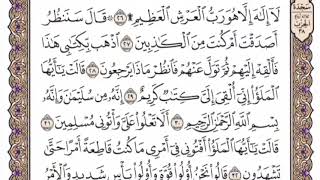 لَآ إِلَٰهَ إِلَّا هُوَ رَبُّ ٱلْعَرْشِ ٱلْعَظِيمِ ۩ ٢٦ ۞ قَالَ سَنَنظُرُ
أَصَدَقْتَ أَمْ كُنتَ مِنَ ٱلْكَٰذِبِينَ ٢٧ ٱذْهَب بِّكِتَٰبِي هَٰذَا
فَأَلْقِهْ إِلَيْهِمْ ثُمَّ تَوَلَّ عَنْهُمْ فَٱنظُرْ مَاذَا يَرْجِعُونَ ٢٨ قَالَتْ يَٰٓأَيُّهَا
ٱلْمَلَؤُا۟ إِنِّيٓ أُلْقِيَ إِلَيَّ كِتَٰبٌ كَرِيمٌ ٢٩ إِنَّهُۥ مِن سُلَيْمَٰنَ وَإِنَّهُۥ
بِسْمِ ٱللَّهِ ٱلرَّحْمَٰنِ ٱلرَّحِيمِ ٣٠ أَلَّا تَعْلُوا۟ عَلَيَّ وَأْتُونِي مُسْلِمِينَ ٣١
قَالَتْ يَٰٓأَيُّهَا ٱلْمَلَؤُا۟ أَفْتُونِي فِيٓ أَمْرِي مَا كُنتُ قَاطِعَةً أَمْرًا حَتَّىٰ
تَشْهَدُونِ ٣٢ قَالُوا۟ نَحْنُ أُو۟لُوا۟ قُوَّةٍ وَأُو۟لُوا۟ بَأْسٍ شَدِيدٍ وَٱلْأَمْرُ
سجدة
الحزب
٣٨